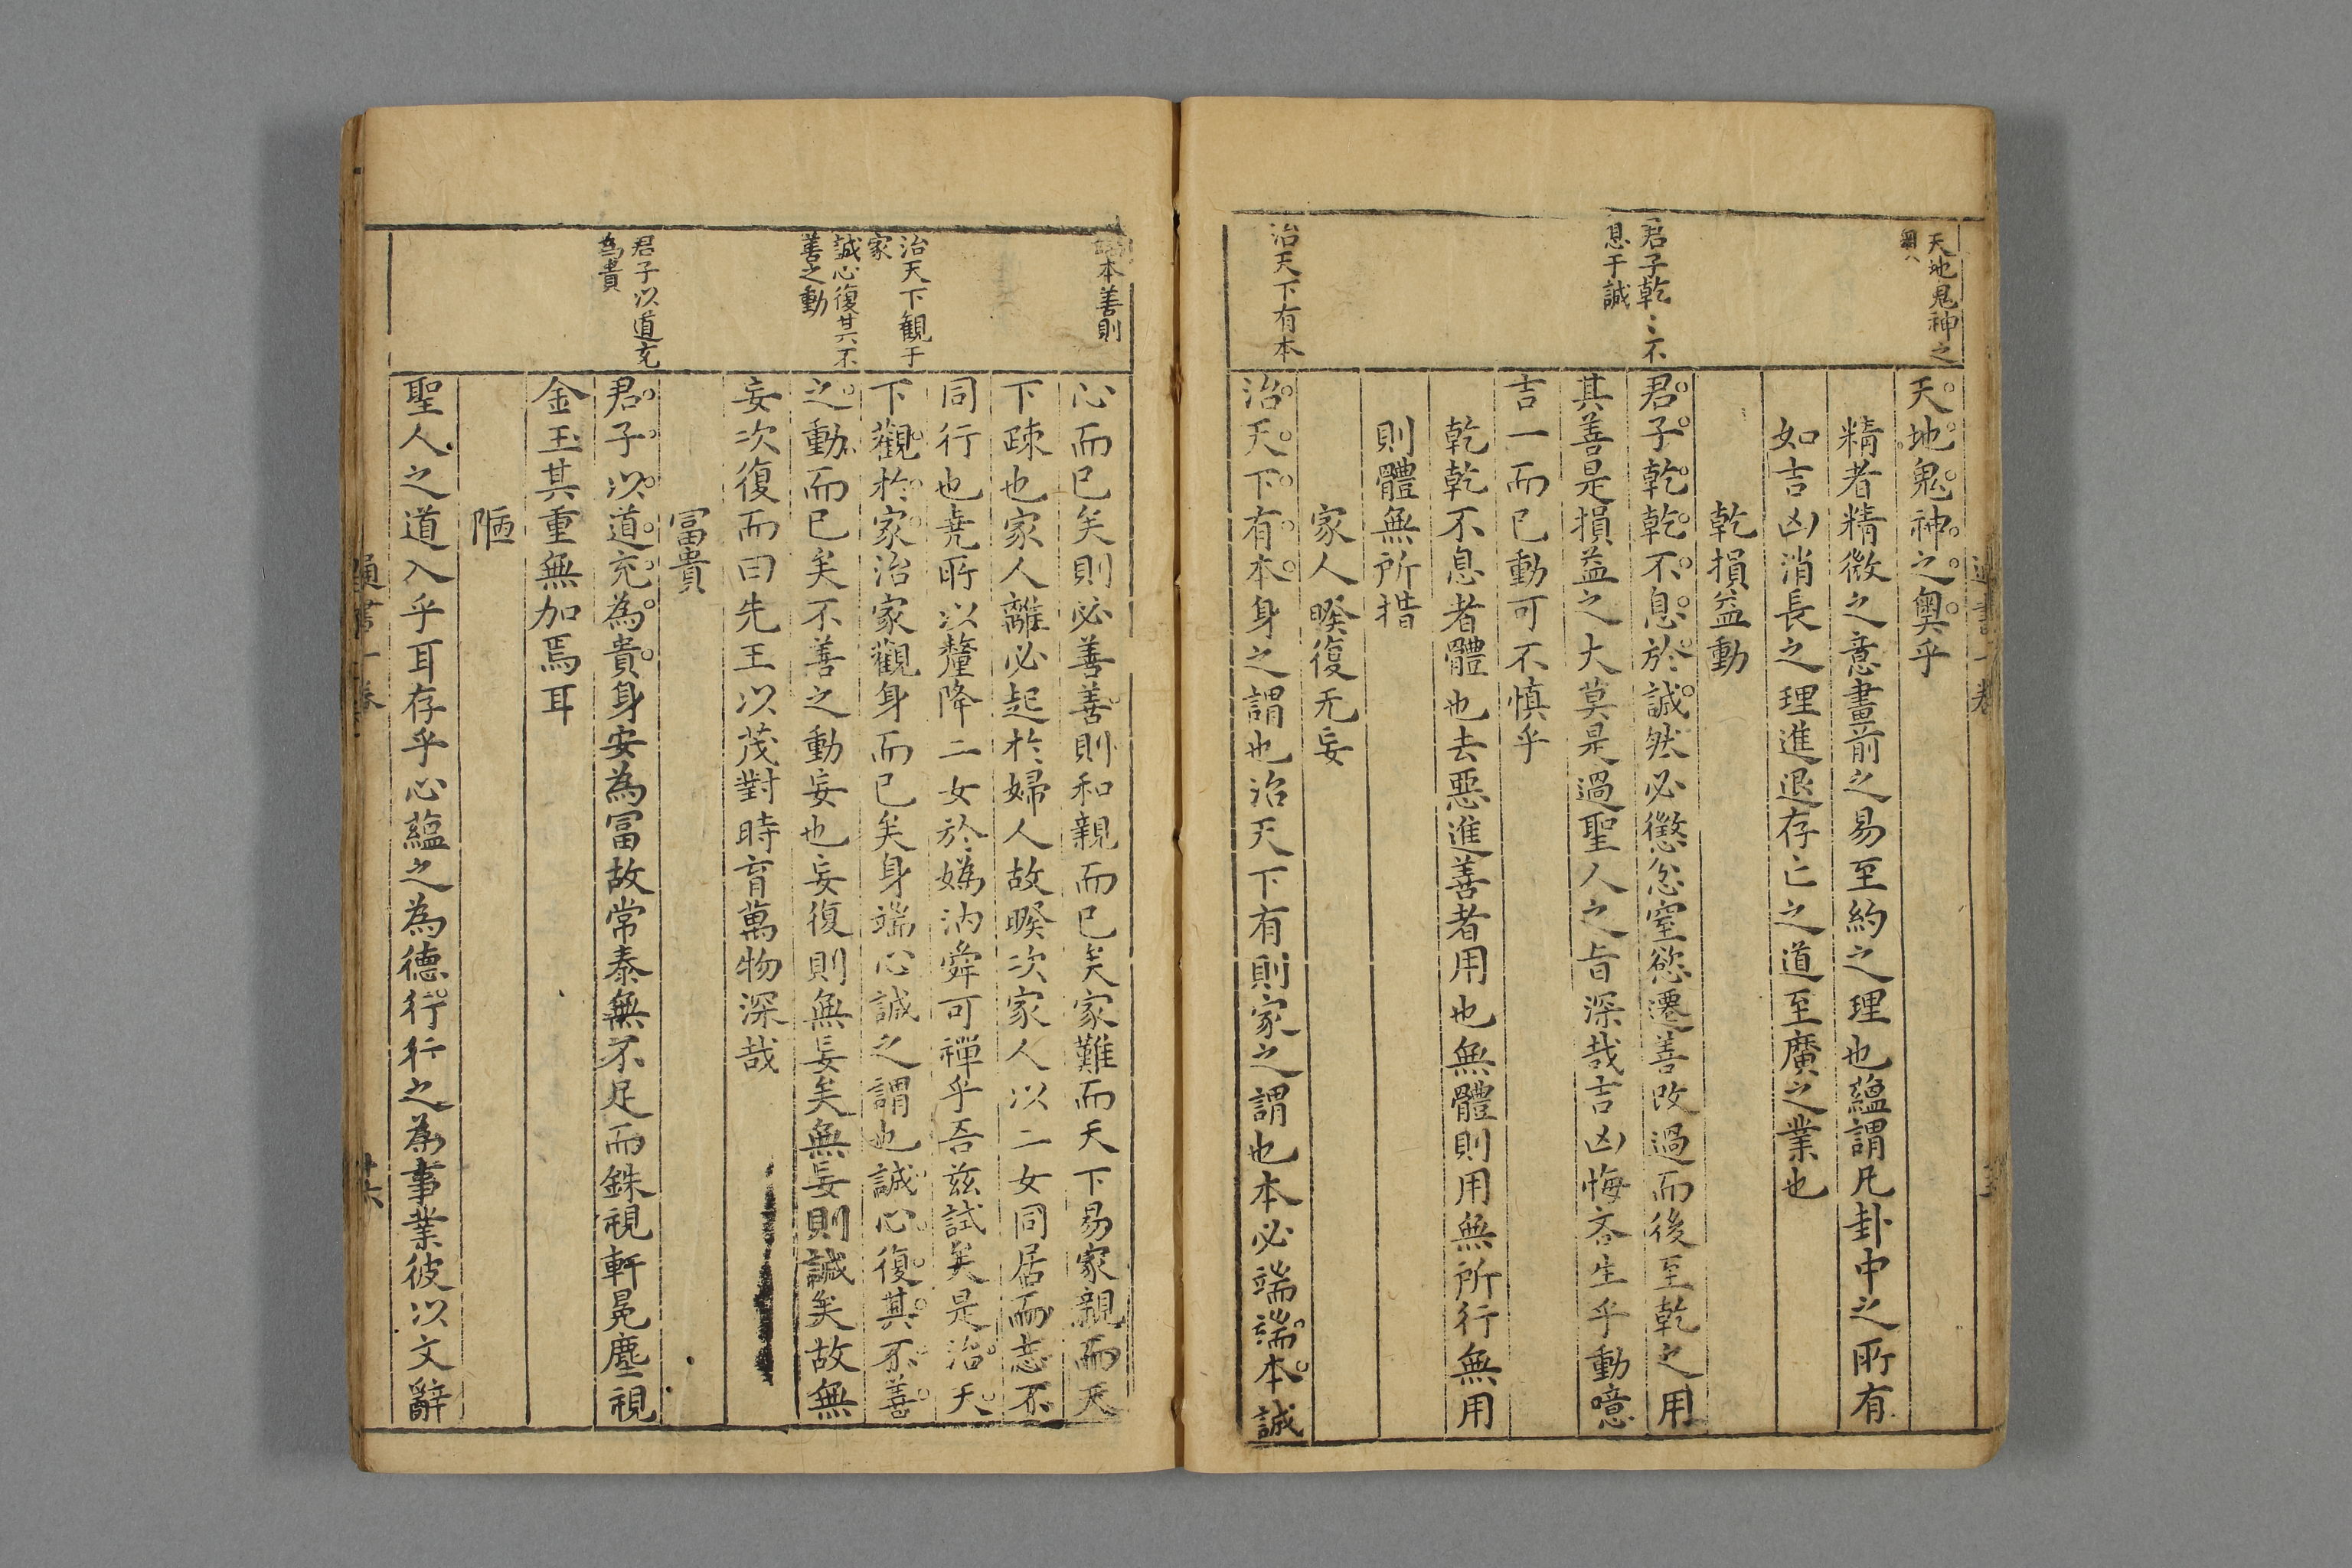 天地鬼神之
奧
天地鬼神之奧乎
精者精微之意畫前之易至約之理也蘊謂凡卦中之所有
如吉凶消長之理進退存亡之道至廣之業也
乾損益動
君子乾〻不
息于誠
君子乾乾不息於誠然必懲忿窒慾遷善改過而後至乾之用
其善是損益之大莫是過聖人之旨深哉吉凶悔吝生乎動噫
吉一而已動可不慎乎
乾乾不息者體也去惡進善者用也無體則用無所行無用
則體無所措
家人睽復无妄
治天下有本
治天下有本身之謂也治天下有則家之謂也本必端端本誠
本善則
心而已矣則必善善則和親而已矣家難而天下易家親而天
下疎也家人離必起於婦人故睽次家人以二女同居而志不
同行也堯所以釐降二女於媯汭舜可禪乎吾兹試矣是治天
治天下観于
家
下觀於家治家觀身而已矣身端心誠之謂也誠心復其不善
誠心復其不
善之動
之動而已矣不善之動妄也妄復則無妄矣無妄則誠矣故無
妄次復而曰先王以茂對時育萬物深哉
富貴
君子以道充
為貴
君子以道充為貴身安為冨故常泰無不足而銖視軒冕塵視
金玉其重無加焉耳
陋
聖人之道入乎耳存乎心蘊之為德行行之為事業彼以文辭
通書一卷
廿六